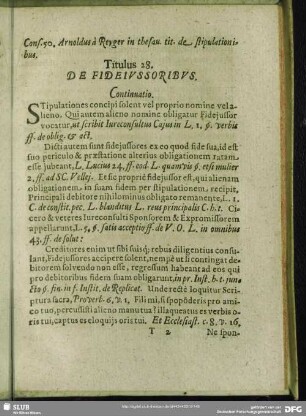 Cons. 50. Arnoldus à Reyger in thesau. tit. de stipulationi-
bus.
Titulus 28.
DE FIDEIVSSORIBVS.
Continuatio.
Stipulationes concipi solent vel proprio nomine vel a-
lieno. Qui autem alieno nomine obligatur Fidejussor
vocatur, ut scribit Iureconsultus Cajus in L. 1. §. verbis
ff. de oblig. & act.
Dicti autem sunt fidejussores ex eo quod fide sua, id est
suo periculo & præstatione alterius obligationem ratam
esse jubeant, L. Lucius 24. ff. eod. L. quamvis §. etsi mulier
2. ff. ad SC. Vellej. Et sic propriè fidejussor est, qui alienam
obligationem, in suam fidem per stipulationem, recipit,
Principali debitore nihilominus obligato remanente, L. 1.
C. de constit. pec. L. blanditus L. reus principalis C. h. t. Ci-
cero & veteres Iureconsulti Sponsorem & Expromissorem
appellarunt, L. 5, §. satis acceptio ff. de V. O. L. in omnibus
43. ff. de solut:
Creditores enim ut sibi suisq; rebus diligentius consu-
lant, Fidejussores accipere solent, nempè ut si contingat de-
bitorem solvendo non esse, regressum habeant ad eos qui
pro debitoribus fidem suam obligarunt, in pr. Inst. h. t. jun-
cto §. fin. in f. Instit. de Replicat. Unde rectè loquitur Scri-
ptura sacra, Proverb. 6, v. 1, Fili mi, si spopõderis pro ami-
co tuo, percussisti alieno manu tua: illaqueatus es verbis o-
ris tui, captus es eloquijs oris tui. Et Ecclesiast. c. 8. v. 16,
T 2 Ne spon-
SLUB
DFG